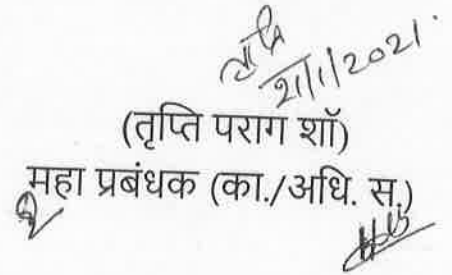 तृप्ति
21/1/2021.
(तृप्ति पराग शॉ)
महा प्रबंधक (का./अधि. स.)